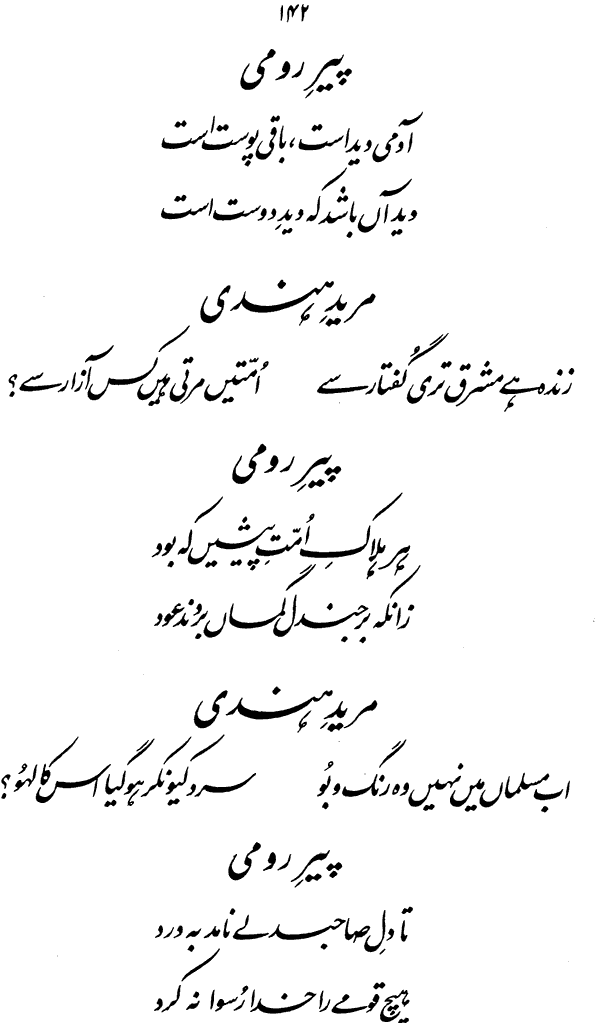 ۱۴۲
پیرِ رومی
آدمی دید است، باقی پوست است
دید آں باشد کہ دیدِ دوست است
مریدِ ہندی
زندہ ہے مشرق تری گفتار سے اُمّتیں مرتی ہیں کس آزار سے؟
پیرِ رومی
ہر ہلاکِ اُمّتِ پیشیں کہ بود
زانکہ بر جندل گماں بردند عود
مریدِ ہندی
اب مسلماں میں نہیں وہ رنگ و بُو سرد کیونکر ہو گیا اس کا لہُو؟
پیرِ رومی
تا دلِ صاحبدلے نامد بہ درد
ہیچ قومے را خدا رُسوا نہ کرد